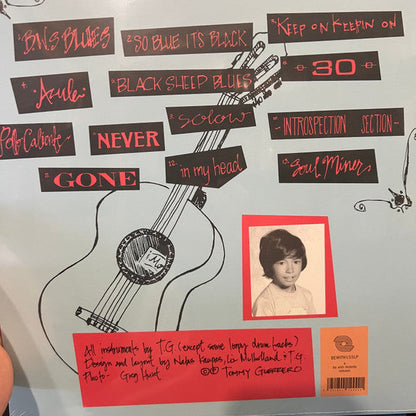 1. BWS BLUES
2. SO BLUE ITS BLACK
3. KEEP ON KEEPIN ON
4. Azule
5. BLACK SHEEP BLUES
6. 30
Pollo Caliente
8. NEVER
9. SOLOW
10. INTROSPECTION SECTION
11. GONE
12. in my head
13. Soul Miner
All instruments by T.G. (except some loopy drum tracks)
Design and layout by Natas Kaupas, Liv Mulholland & T.G.
Photo - Greg Hunt. ©℗ TOMMY GUERRERO
BEWITH133LP
be with records